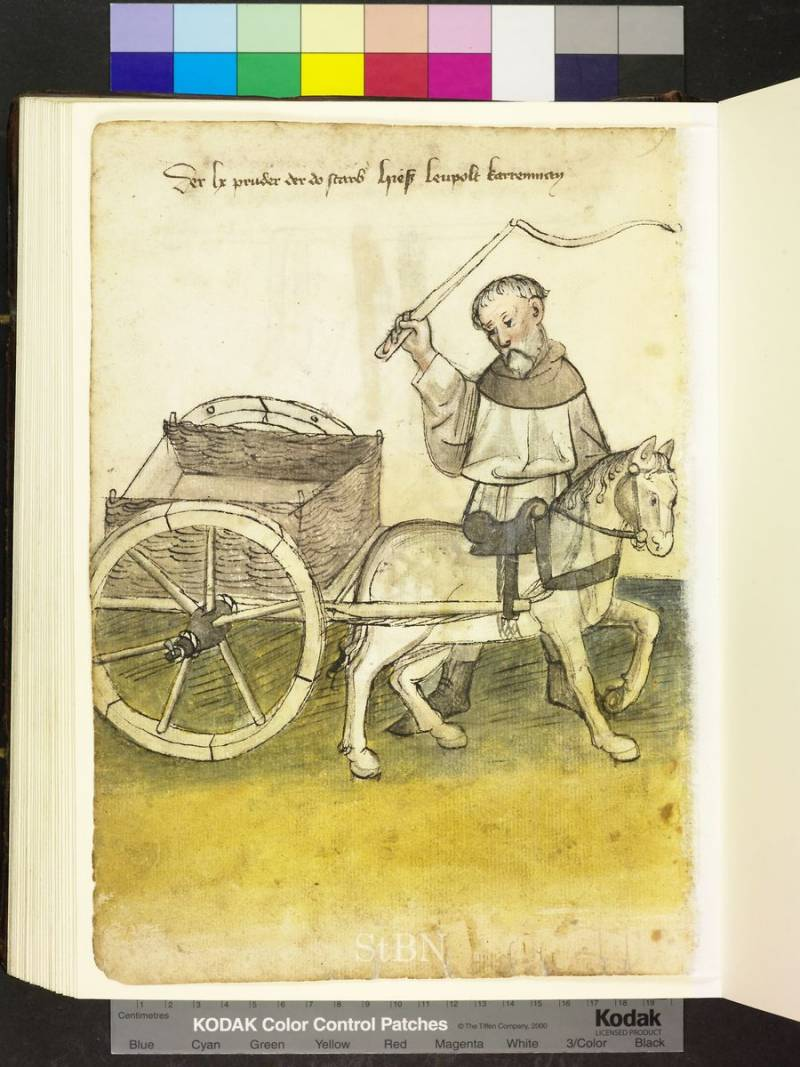 Der lx pruder der do starb hieß leupolt karrenman
StBN
1 2 3 4 5 6 7 8 9 10 11 12 13 14 15 16 17 18 19
Centimetres
KODAK Color Control Patches © The Tiffen Company, 2000 Kodak
LICENSED PRODUCT
Blue Cyan Green Yellow Red Magenta White 3/Color Black